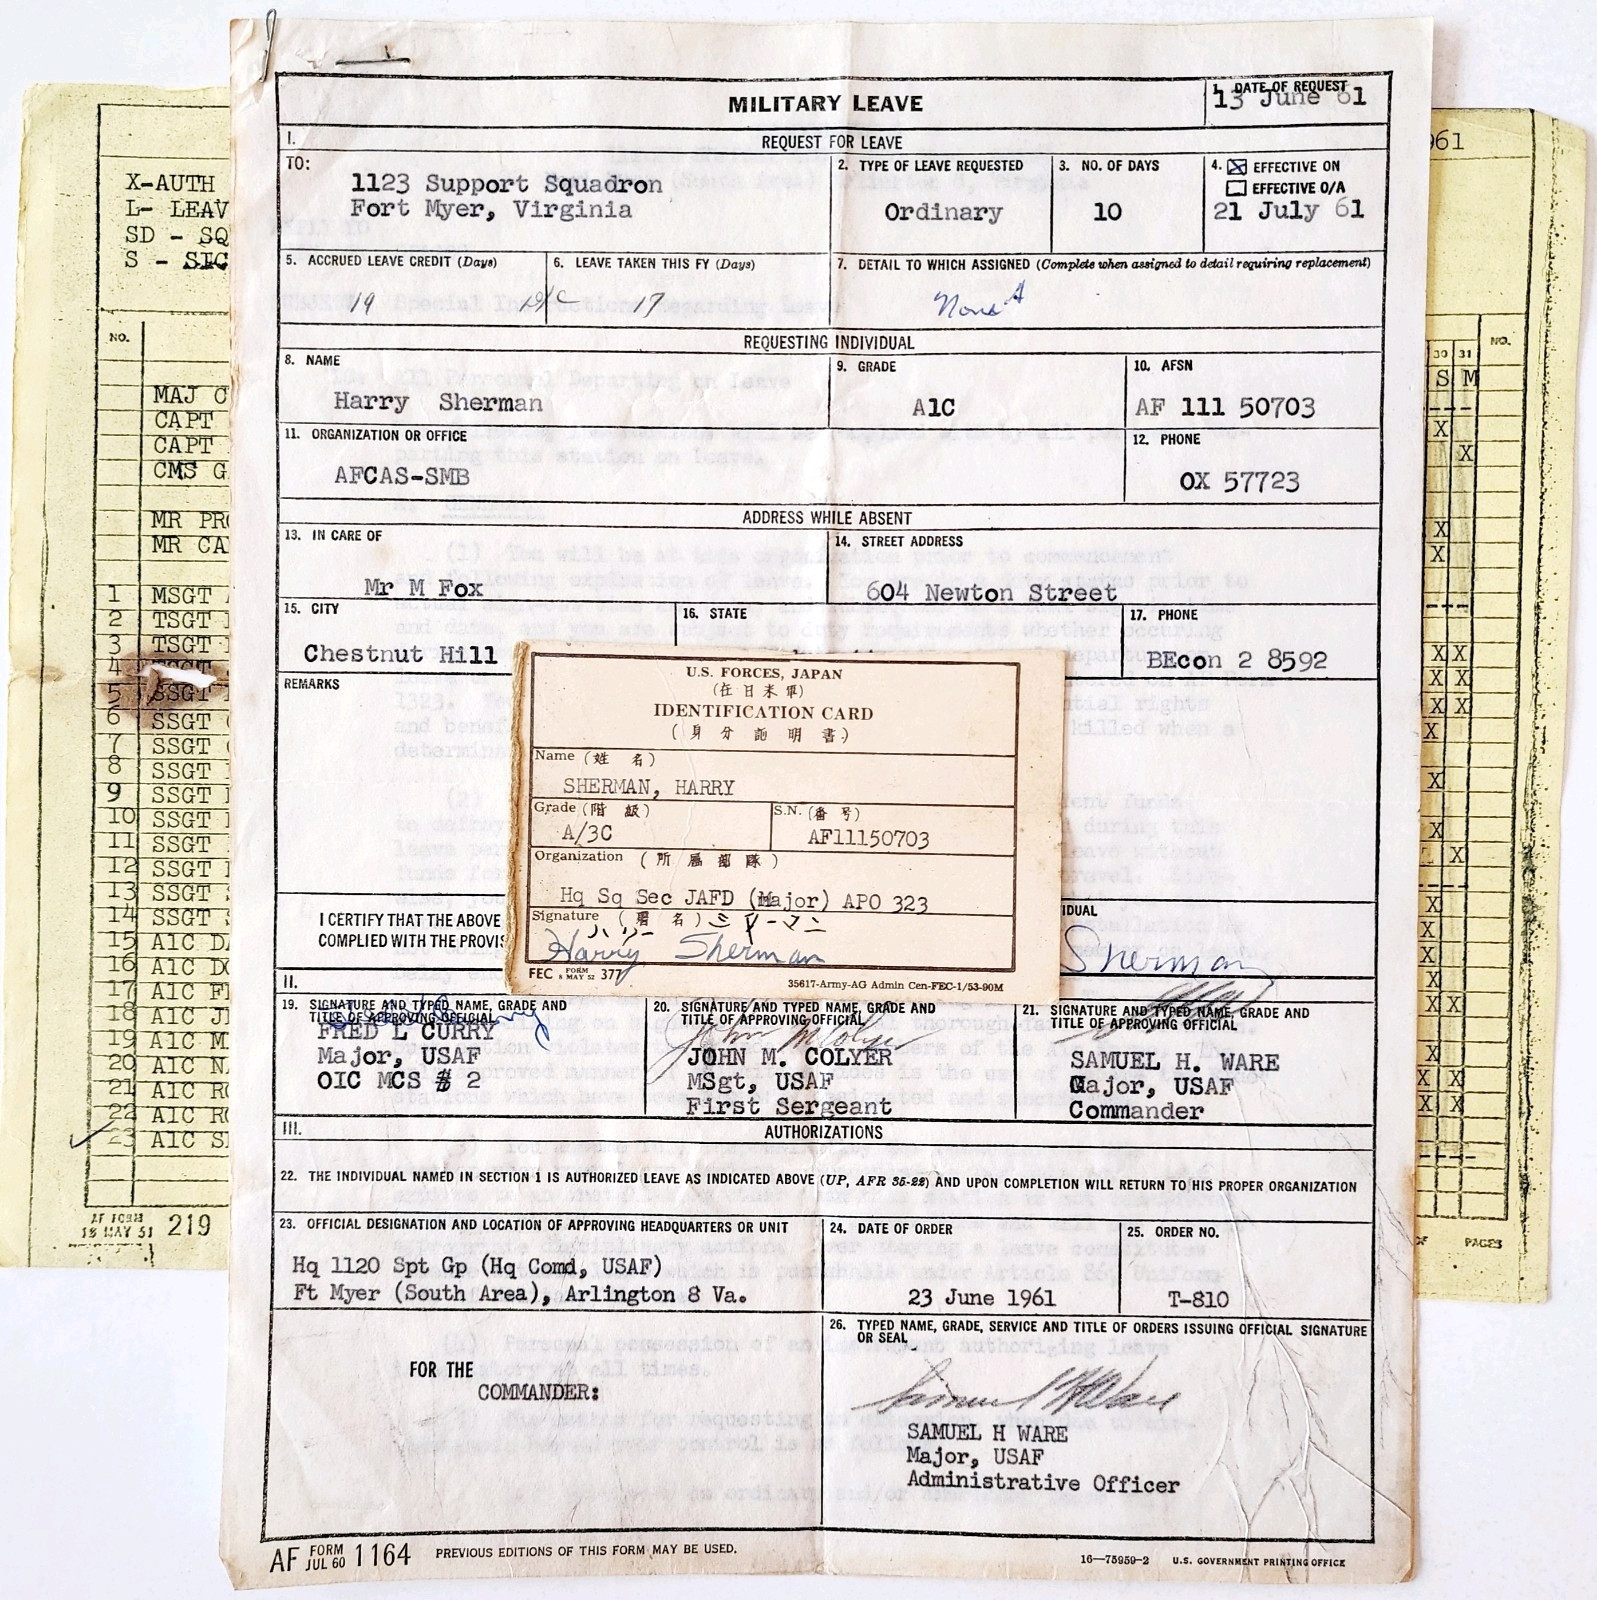 MILITARY LEAVE
1. DATE OF REQUEST
13 June 61
I.
REQUEST FOR LEAVE
TO:
1123 Support Squadron
Fort Myer, Virginia
2. TYPE OF LEAVE REQUESTED
Ordinary
3. NO. OF DAYS
10
4. EFFECTIVE ON
EFFECTIVE O/A
21 July 61
5. ACCRUED LEAVE CREDIT (Days)
19
6. LEAVE TAKEN THIS FY (Days)
17
7. DETAIL TO WHICH ASSIGNED (Complete when assigned to detail requiring replacement)
None
REQUESTING INDIVIDUAL
8. NAME
Harry Sherman
9. GRADE
A1C
10. AFSN
AF 111 50703
11. ORGANIZATION OR OFFICE
AFCAS-SMB
12. PHONE
OX 57723
ADDRESS WHILE ABSENT
13. IN CARE OF
Mr M Fox
14. STREET ADDRESS
604 Newton Street
15. CITY
Chestnut Hill
16. STATE
17. PHONE
BEcon 2 8592
REMARKS
U.S. FORCES, JAPAN
(在日米軍)
IDENTIFICATION CARD
(身分証明書)
Name (姓名)
SHERMAN, HARRY
Grade (階級)
A/3C
S.N. (番号)
AF11150703
Organization (所属部隊)
Hq Sq Sec JAFD (Major) APO 323
Signature (署名) シャーマン
ハリー
Harry Sherman
FEC FORM 8 MAY 52 377
35617-Army-AG Admin Cen-FEC-1/53-90M
I CERTIFY THAT THE ABOVE
COMPLIED WITH THE PROVIS
IDUAL
Sherman
II.
19. SIGNATURE AND TYPED NAME, GRADE AND
TITLE OF APPROVING OFFICIAL
FRED L CURRY
Major, USAF
OIC MCS # 2
20. SIGNATURE AND TYPED NAME, GRADE AND
TITLE OF APPROVING OFFICIAL
John M Colyer
JOHN M. COLYER
MSgt, USAF
First Sergeant
21. SIGNATURE AND TYPED NAME, GRADE AND
TITLE OF APPROVING OFFICIAL
SAMUEL H. WARE
Major, USAF
Commander
III.
AUTHORIZATIONS
22. THE INDIVIDUAL NAMED IN SECTION 1 IS AUTHORIZED LEAVE AS INDICATED ABOVE (UP, AFR 35-22) AND UPON COMPLETION WILL RETURN TO HIS PROPER ORGANIZATION
23. OFFICIAL DESIGNATION AND LOCATION OF APPROVING HEADQUARTERS OR UNIT
Hq 1120 Spt Gp (Hq Comd, USAF)
Ft Myer (South Area), Arlington 8 Va.
24. DATE OF ORDER
23 June 1961
25. ORDER NO.
T-810
26. TYPED NAME, GRADE, SERVICE AND TITLE OF ORDERS ISSUING OFFICIAL SIGNATURE
OR SEAL
FOR THE
COMMANDER:
Samuel H Ware
SAMUEL H WARE
Major, USAF
Administrative Officer
AF FORM JUL 60 1164
PREVIOUS EDITIONS OF THIS FORM MAY BE USED.
16—75959-2 U.S. GOVERNMENT PRINTING OFFICE
X-AUTH
L- LEAV
SD - SQ
S - SIC
NO.
MAJ C
CAPT
CAPT
CMS G
MR PRO
MR CA
1 MSGT
2 TSGT
3 TSGT
4 TSGT
5 SSGT
6 SSGT
7 SSGT
8 SSGT
9 SSGT
10 SSGT
11 SSGT
12 SSGT
13 SSGT
14 SSGT
15 A1C DA
16 A1C DO
17 A1C FI
18 A1C JE
19 A1C M
20 A1C NA
21 A1C RO
22 A1C RO
23 A1C SH
AF FORM
18 MAY 51 219
961
30 31 NO.
S M
X
X
X
X
X X
X X
X
X
X
X
X
X
X X
X
X X
X X
OF PAGES